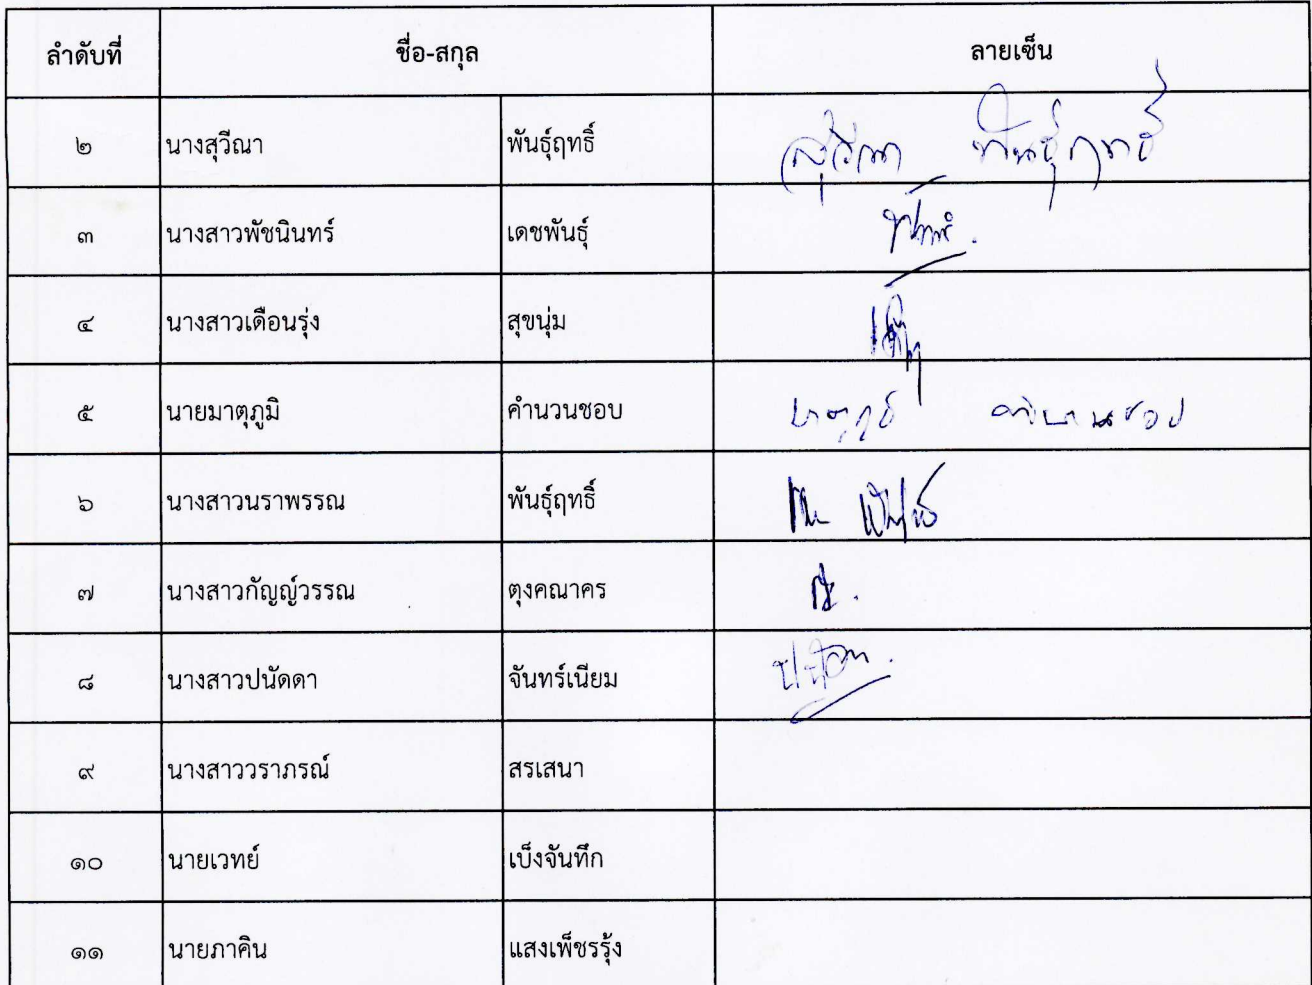 ลำดับที่ ชื่อ-สกุล ลายเซ็น
๒ นางสุวีณา พันธุ์ฤทธิ์ สุวีณา พันธุ์ฤทธิ์
๓ นางสาวพัชนินทร์ เดชพันธุ์
๔ นางสาวเดือนรุ่ง สุขนุ่ม
๕ นายมาตุภูมิ คำนวนชอบ มาตุภูมิ คำนวนชอบ
๖ นางสาวนราพรรณ พันธุ์ฤทธิ์
๗ นางสาวกัญญ์วรรณ ตุงคณาคร
๘ นางสาวปนัดดา จันทร์เนียม ปนัดดา
๙ นางสาววราภรณ์ สรเสนา
๑๐ นายเวทย์ เบ็งจันทึก
๑๑ นายภาคิน แสงเพ็ชรรุ้ง